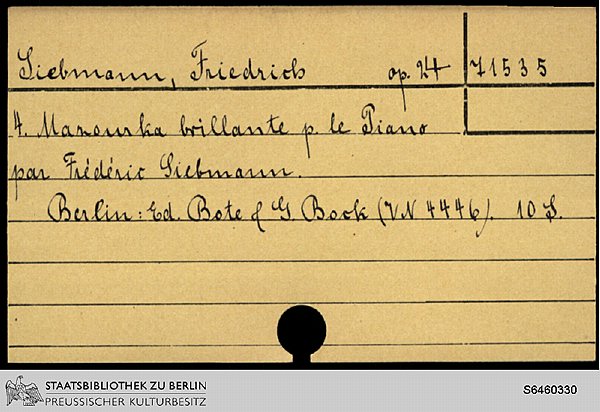 Siebmann, Friedrich op. 24 71535
4. Mazourka brillante p. le Piano
par Frédéric Siebmann.
Berlin: Ed. Bote & G. Bock (VN 4446). 10 S.
STAATSBIBLIOTHEK ZU BERLIN
PREUSSISCHER KULTURBESITZ
S6460330